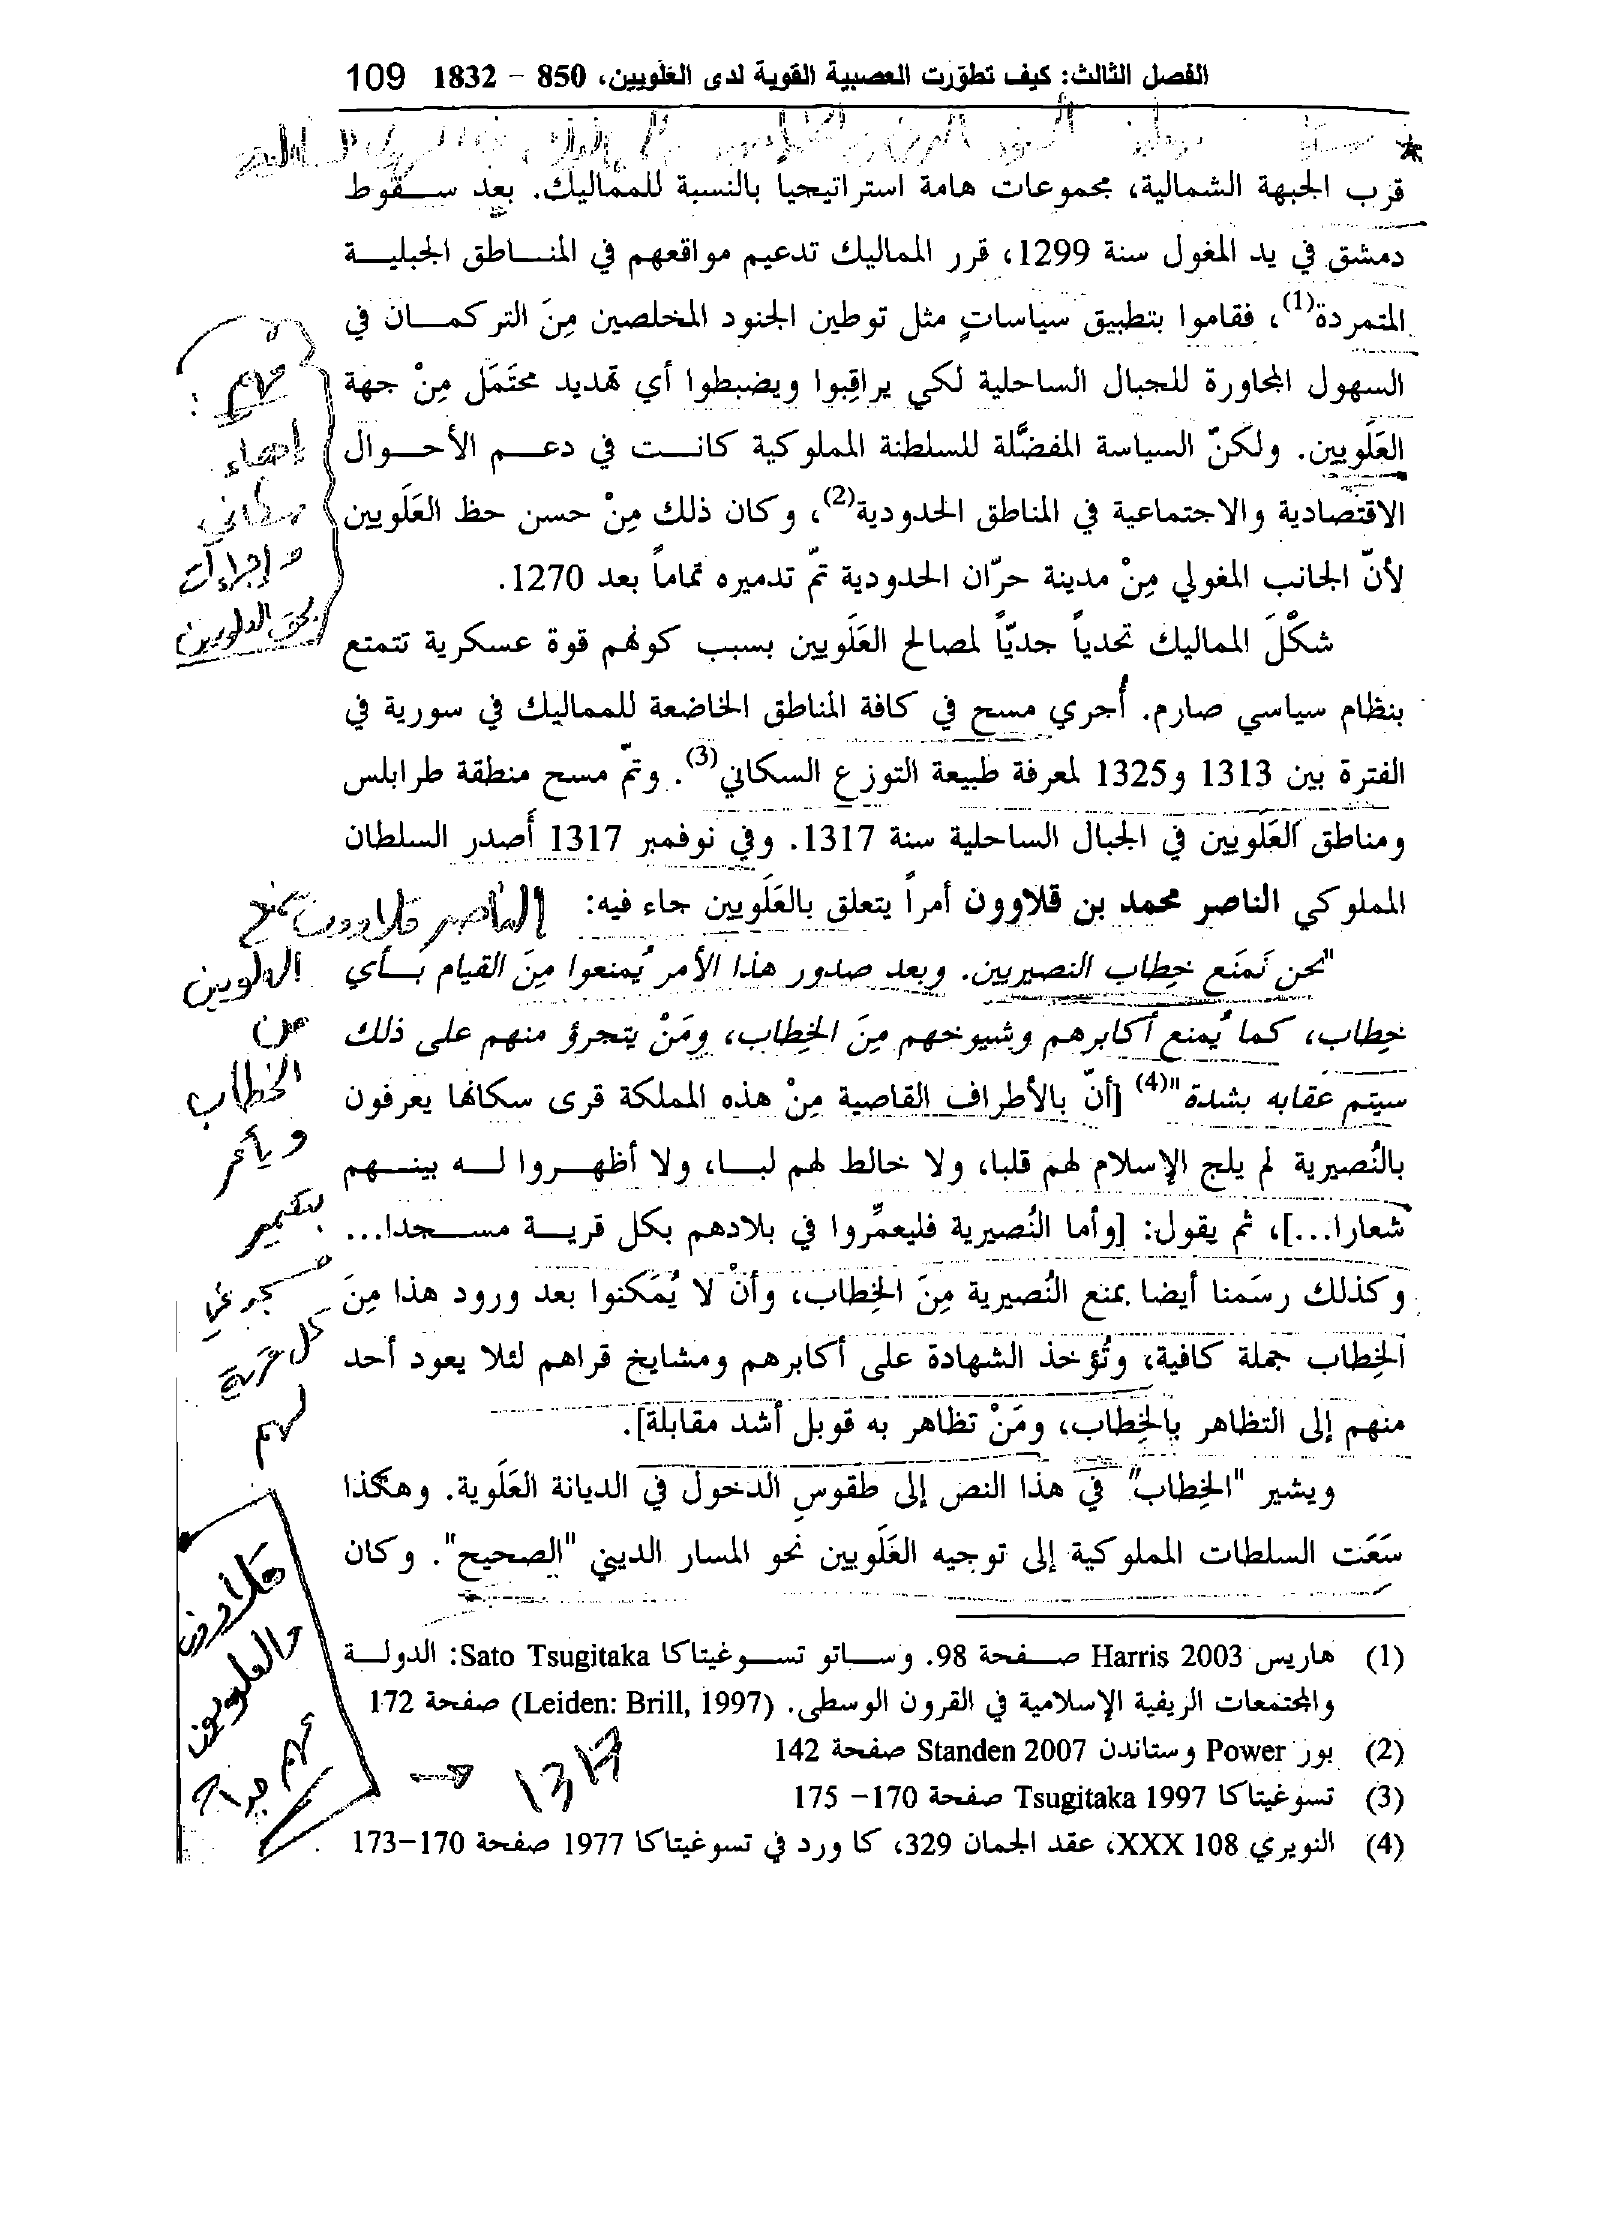 الفصل الثالث: كيف تطوّرت العصبية القوية لدى العَلَويين، 850 - 1832 109
قرب الجبهة الشمالية، مجموعات هامة استراتيجياً بالنسبة للمماليك. بعد سقوط
دمشق في يد المغول سنة 1299، قرر المماليك تدعيم مواقعهم في المناطق الجبلية
المتمردة(1)، فقاموا بتطبيق سياساتٍ مثل توطين الجنود المخلصين مِنَ التركمان في
السهول المجاورة للجبال الساحلية لكي يراقِبوا ويضبطوا أي تهديد محتَمَل مِنْ جهة
العَلَويين. ولكنّ السياسة المفضَّلة للسلطنة المملوكية كانت في دعم الأحوال
الاقتصادية والاجتماعية في المناطق الحدودية(2)، وكان ذلك مِنْ حسن حظ العَلَويين
لأنّ الجانب المغولي مِنْ مدينة حرّان الحدودية تمّ تدميره تماماً بعد 1270.
شكْلَ المماليك تحدياً جديّاً لمصالح العَلَويين بسبب كونهم قوة عسكرية تتمتع
بنظام سياسي صارم. أُجري مسح في كافة المناطق الخاضعة للمماليك في سورية في
الفترة بين 1313 و1325 لمعرفة طبيعة التوزع السكاني(3). وتمّ مسح منطقة طرابلس
ومناطق العَلَويين في الجبال الساحلية سنة 1317. وفي نوفمبر 1317 أَصدر السلطان
المملوكي الناصر محمد بن قلاوون أمراً يتعلق بالعَلَويين جاء فيه:
"نحن نَمنَع خِطاب النصيريين. وبعد صدور هذا الأمر يُمنعوا مِنَ القيام بأي
خِطاب، كما يُمنع أكابرهم وشيوخهم مِنَ الخِطاب، ومَنْ يتجرؤ منهم على ذلك
سيتم عقابه بشدة"(4) [أنّ بالأطراف القاصية مِنْ هذه المملكة قرى سكانها يعرفون
بالنُصيرية لم يلج الإسلام لهم قلبا، ولا خالط لهم لبا، ولا أظهروا له بينهم
شعارا...]، ثم يقول: [وأما النُصيرية فليعمِّروا في بلادهم بكل قرية مسجدا...
وكذلك رسَمنا أيضا بمنع النُصيرية مِنَ الخِطاب، وأنْ لا يُمَكنوا بعد ورود هذا مِنَ
الخِطاب جملة كافية، وتُؤخذ الشهادة على أكابرهم ومشايخ قراهم لئلا يعود أحد
منهم إلى التظاهر بالخِطاب، ومَنْ تظاهر به قوبل أشد مقابلة].
ويشير "الخِطاب" في هذا النص إلى طقوس الدخول في الديانة العَلَوية. وهكذا
سَعَت السلطات المملوكية إلى توجيه العَلَويين نحو المسار الديني "الصحيح". وكان
(1) هاريس Harris 2003 صفحة 98. وساتو تسوغيتاكا Sato Tsugitaka: الدولة
والمجتمعات الريفية الإسلامية في القرون الوسطى. (Leiden: Brill, 1997) صفحة 172
(2) بور Power وستاندن Standen 2007 صفحة 142
(3) تسوغيتاكا Tsugitaka 1997 صفحة 170- 175
(4) النويري XXX 108، عقد الجمان 329، كا ورد في تسوغيتاكا 1977 صفحة 170-173
مهم :
إحصاء
سكاني
وإجراءات
بحق العلويين
الناصر قلاوون يمنع
العلويين
من
الخطاب
ويأمر
بتعمير
مسجد في
كل قرية
لهم
قلاوون
والعلويون
مهم جداً
1317